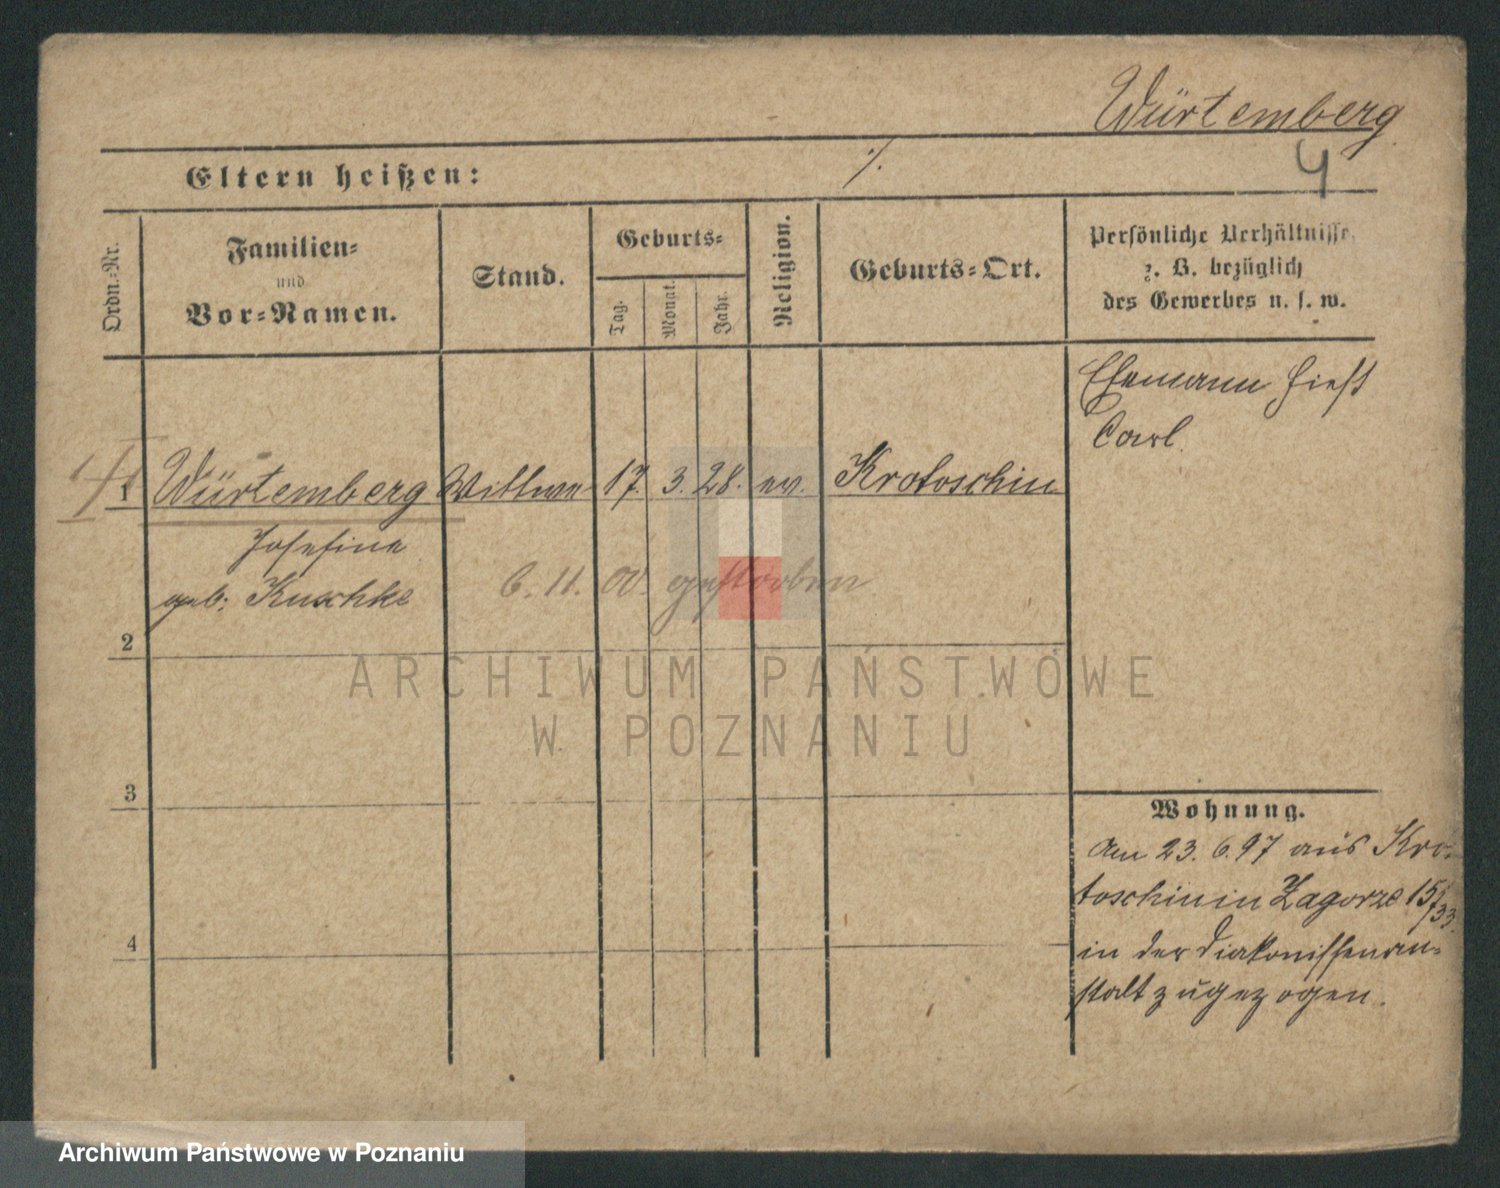 Würtemberg
4
Eltern heißen: ./.
Ordn.-Nr.
Familien-
und
Vor-Namen.
Stand.
Geburts-
Tag.
Monat.
Jahr.
Religion.
Geburts-Ort.
Persönliche Verhältnisse,
z. B. bezüglich
des Gewerbes u. s. w.
Ehemann hieß
Carl.
1 Würtemberg Wittwe 17. 3. 28. ev. Krotoschin
Josefine
geb: Kuschke
6. 11. 00. gestorben
2
ARCHIWUM PAŃSTWOWE
W POZNANIU
3
Wohnung.
Am 23. 6. 97 aus Kro-
toschin in Zagorze 15
/33.
4
in der Diakonissenan-
stalt zugezogen.
Archiwum Państwowe w Poznaniu